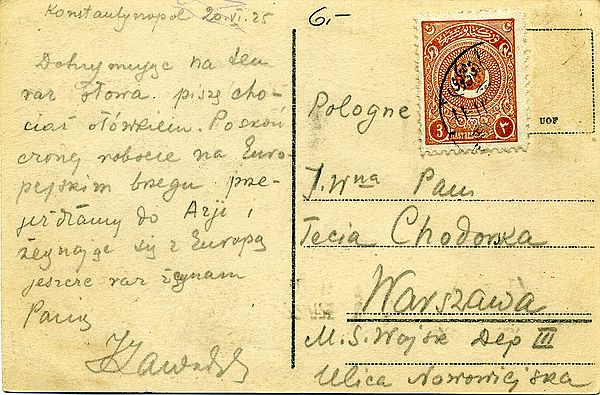 Konstantynopol 20.VI.25
Dotrzymując na ten
raz słowa piszę cho-
ciaż ołówkiem. Po skoń-
czonej robocie na Euro-
pejskim brzegu prze-
jeżdżamy do Azji i
żegnając się z Europą
jeszcze raz żegnam
Panią
6.-
3 PIASTRES ٣
UOF
Pologne
J. Wna Pani
Tecia Chodorska
Warszawa
M. S. Wojsk Dep III
Ulica Nowowiejska